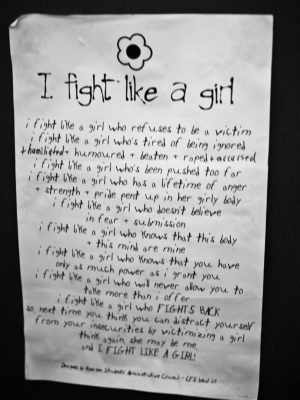 I fight like a girl
i fight like a girl who refuses to be a victim
i fight like a girl who's tired of being ignored
+ humoured + beaten + raped + accursed
i fight like a girl who's been pushed too far
i fight like a girl who has a lifetime of anger
+ strength + pride pent up in her girly body
i fight like a girl who doesn't believe
in fear + submission
i fight like a girl who knows that this body
+ this mind are mine
i fight like a girl who knows that you have
only as much power as i grant you
i fight like a girl who will never allow you to
take more than i offer
i fight like a girl who FIGHTS BACK
so, next time you think you can distract yourself
from your insecurities by victimizing a girl
think again. she may be me
and I FIGHT LIKE A GIRL!
Students'